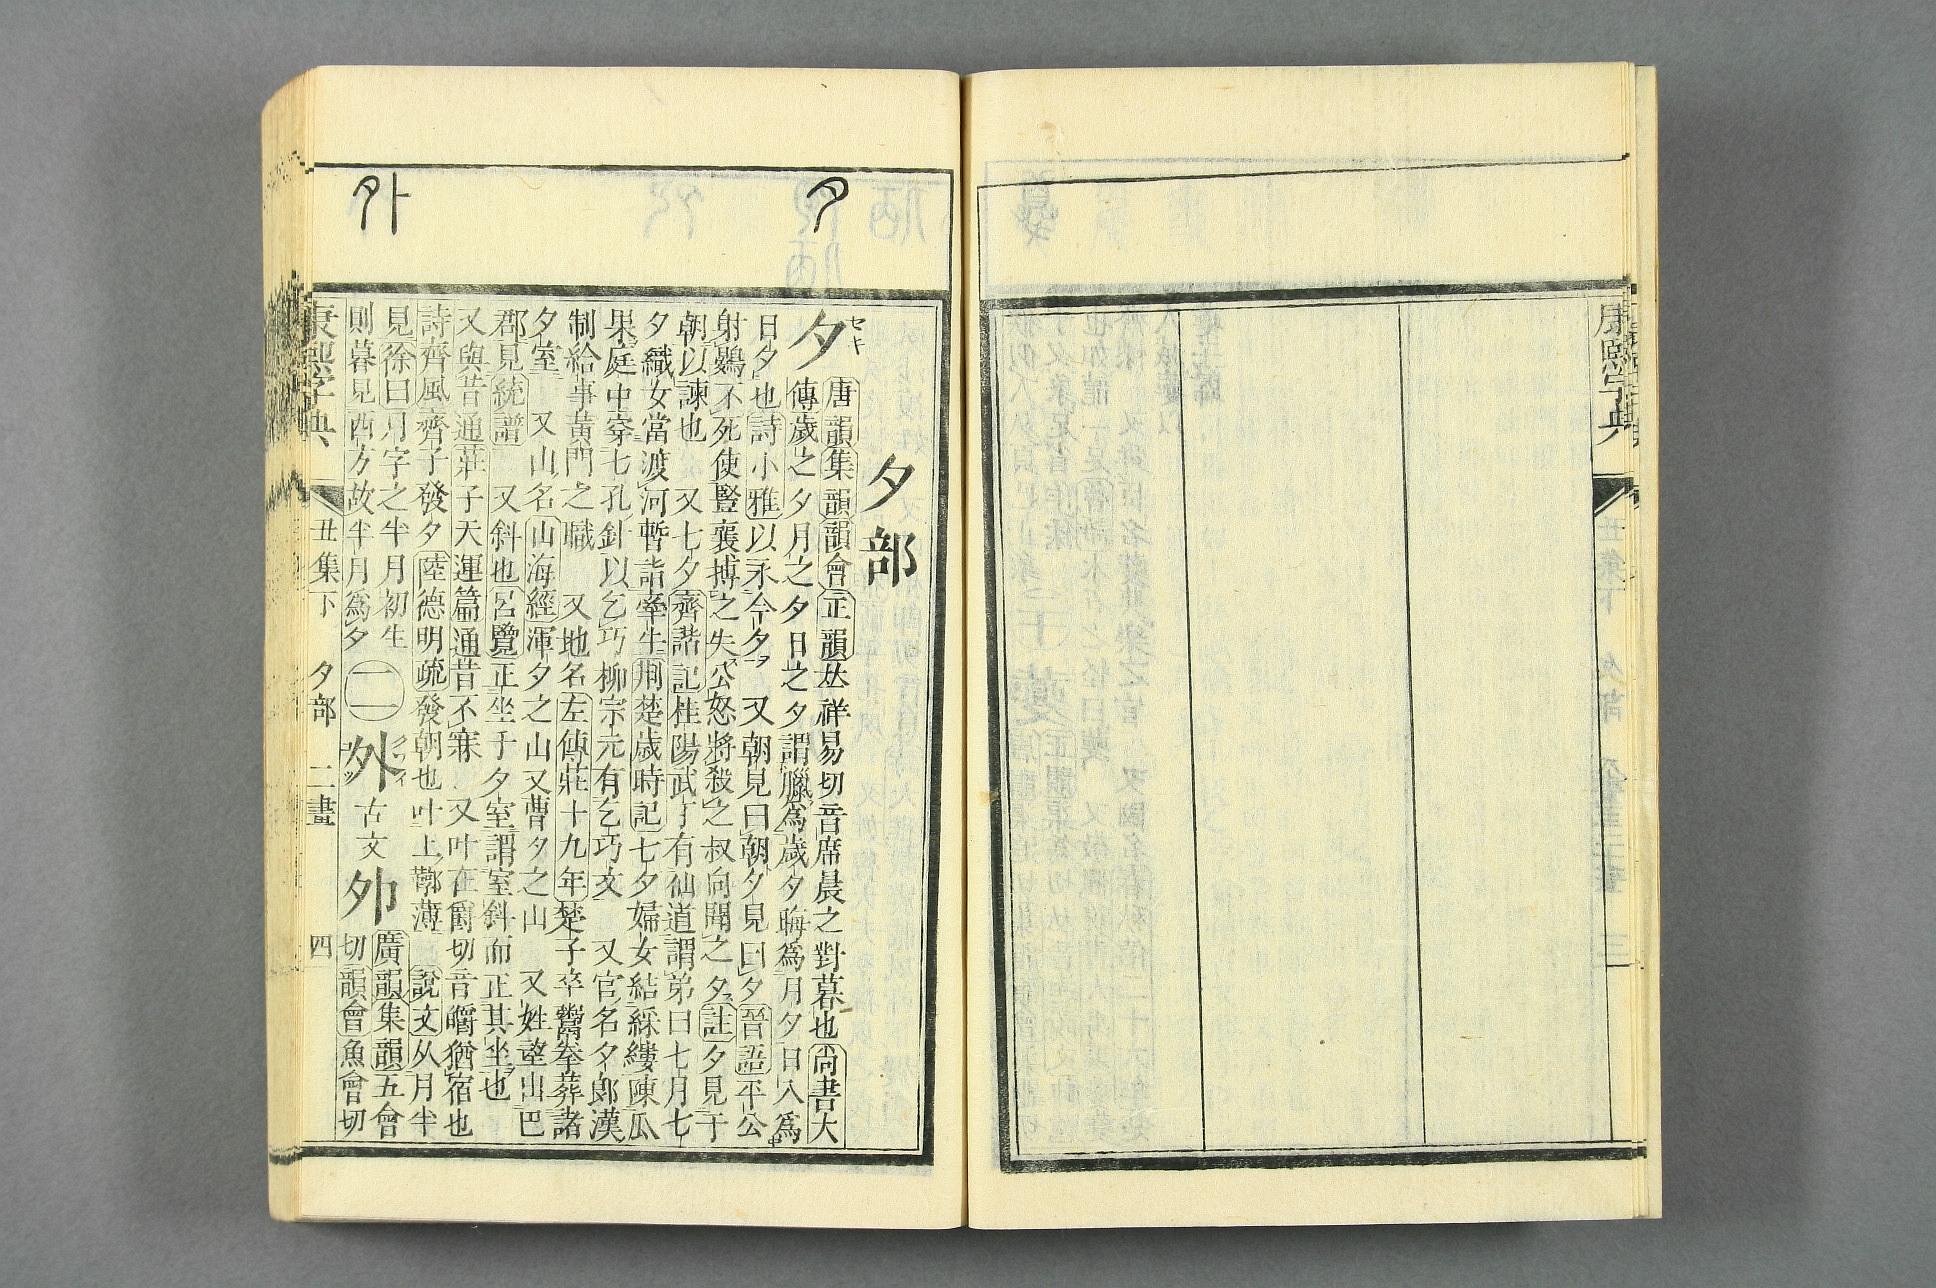 康熙字典 丑集下 三
夕
外
夕部
夕 セキ
唐韻集韻韻會正韻𠀤祥易切音席晨之對暮也尚書大
傳歲之夕月之夕日之夕謂臘爲歲夕晦爲月夕日入爲
日夕也詩小雅以永今夕 又朝見曰朝夕見曰夕晉語平公
射鷃不死使豎襄搏之失公怒將殺之叔向聞之夕註夕見于
朝以諫也 又七夕齊諧記桂陽武丁有仙道謂弟曰七月七
夕織女當渡河暫詣牽牛荆楚歲時記七夕婦女結綵縷陳瓜
果庭中穿七孔針以乞巧柳宗元有乞巧文 又官名夕郎漢
制給事黃門之職 又地名左傳莊十九年楚子卒鬻拳葬諸
夕室 又山名山海經渾夕之山又曹夕之山 又姓望出巴
郡見統譜 又斜也呂覽正坐于夕室謂室斜而正其坐也
又與昔通莊子天運篇通昔不寐 又叶在爵切音嚼猶宿也
詩齊風齊子發夕陸德明疏發朝也叶上鞹薄 說文从月半
見徐曰月字之半月初生
則暮見西方故半月爲夕
二
外 古文 夘
廣韻集韻五會
切韻會魚會切
康熙字典 丑集下 夕部 二畫 四